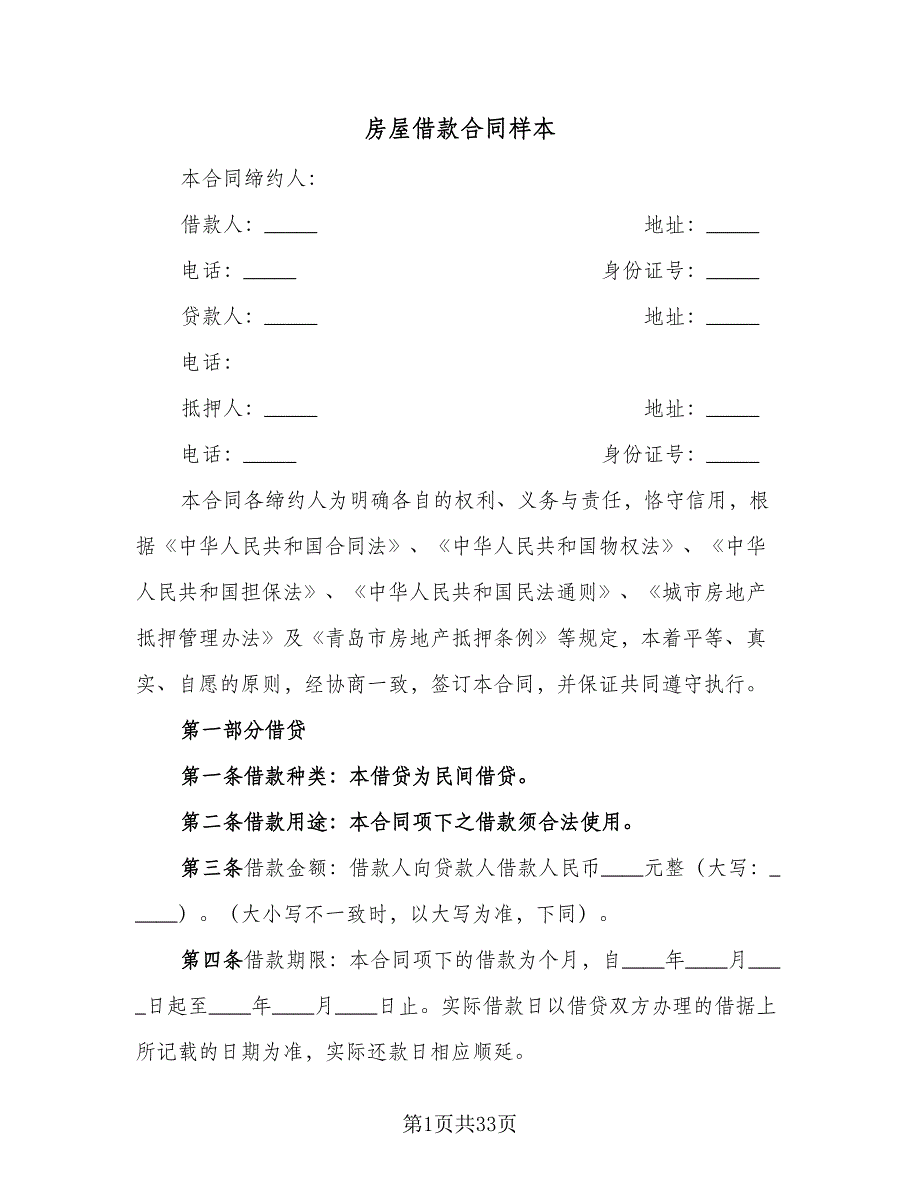 房屋借款合同样本
本合同缔约人：
借款人：_____ 地址：_____
电话：_____ 身份证号：_____
贷款人：_____ 地址：_____
电话：
抵押人：_____ 地址：_____
电话：_____ 身份证号：_____
本合同各缔约人为明确各自的权利、义务与责任，恪守信用，根
据《中华人民共和国合同法》、《中华人民共和国物权法》、《中华
人民共和国担保法》、《中华人民共和国民法通则》、《城市房地产
抵押管理办法》及《青岛市房地产抵押条例》等规定，本着平等、真
实、自愿的原则，经协商一致，签订本合同，并保证共同遵守执行。
第一部分借贷
第一条借款种类：本借贷为民间借贷。
第二条借款用途：本合同项下之借款须合法使用。
第三条借款金额：借款人向贷款人借款人民币____元整（大写：_
____）。（大小写不一致时，以大写为准，下同）。
第四条借款期限：本合同项下的借款为个月，自____年____月___
_日起至____年____月____日止。实际借款日以借贷双方办理的借据上
所记载的日期为准，实际还款日相应顺延。
第1页共33页